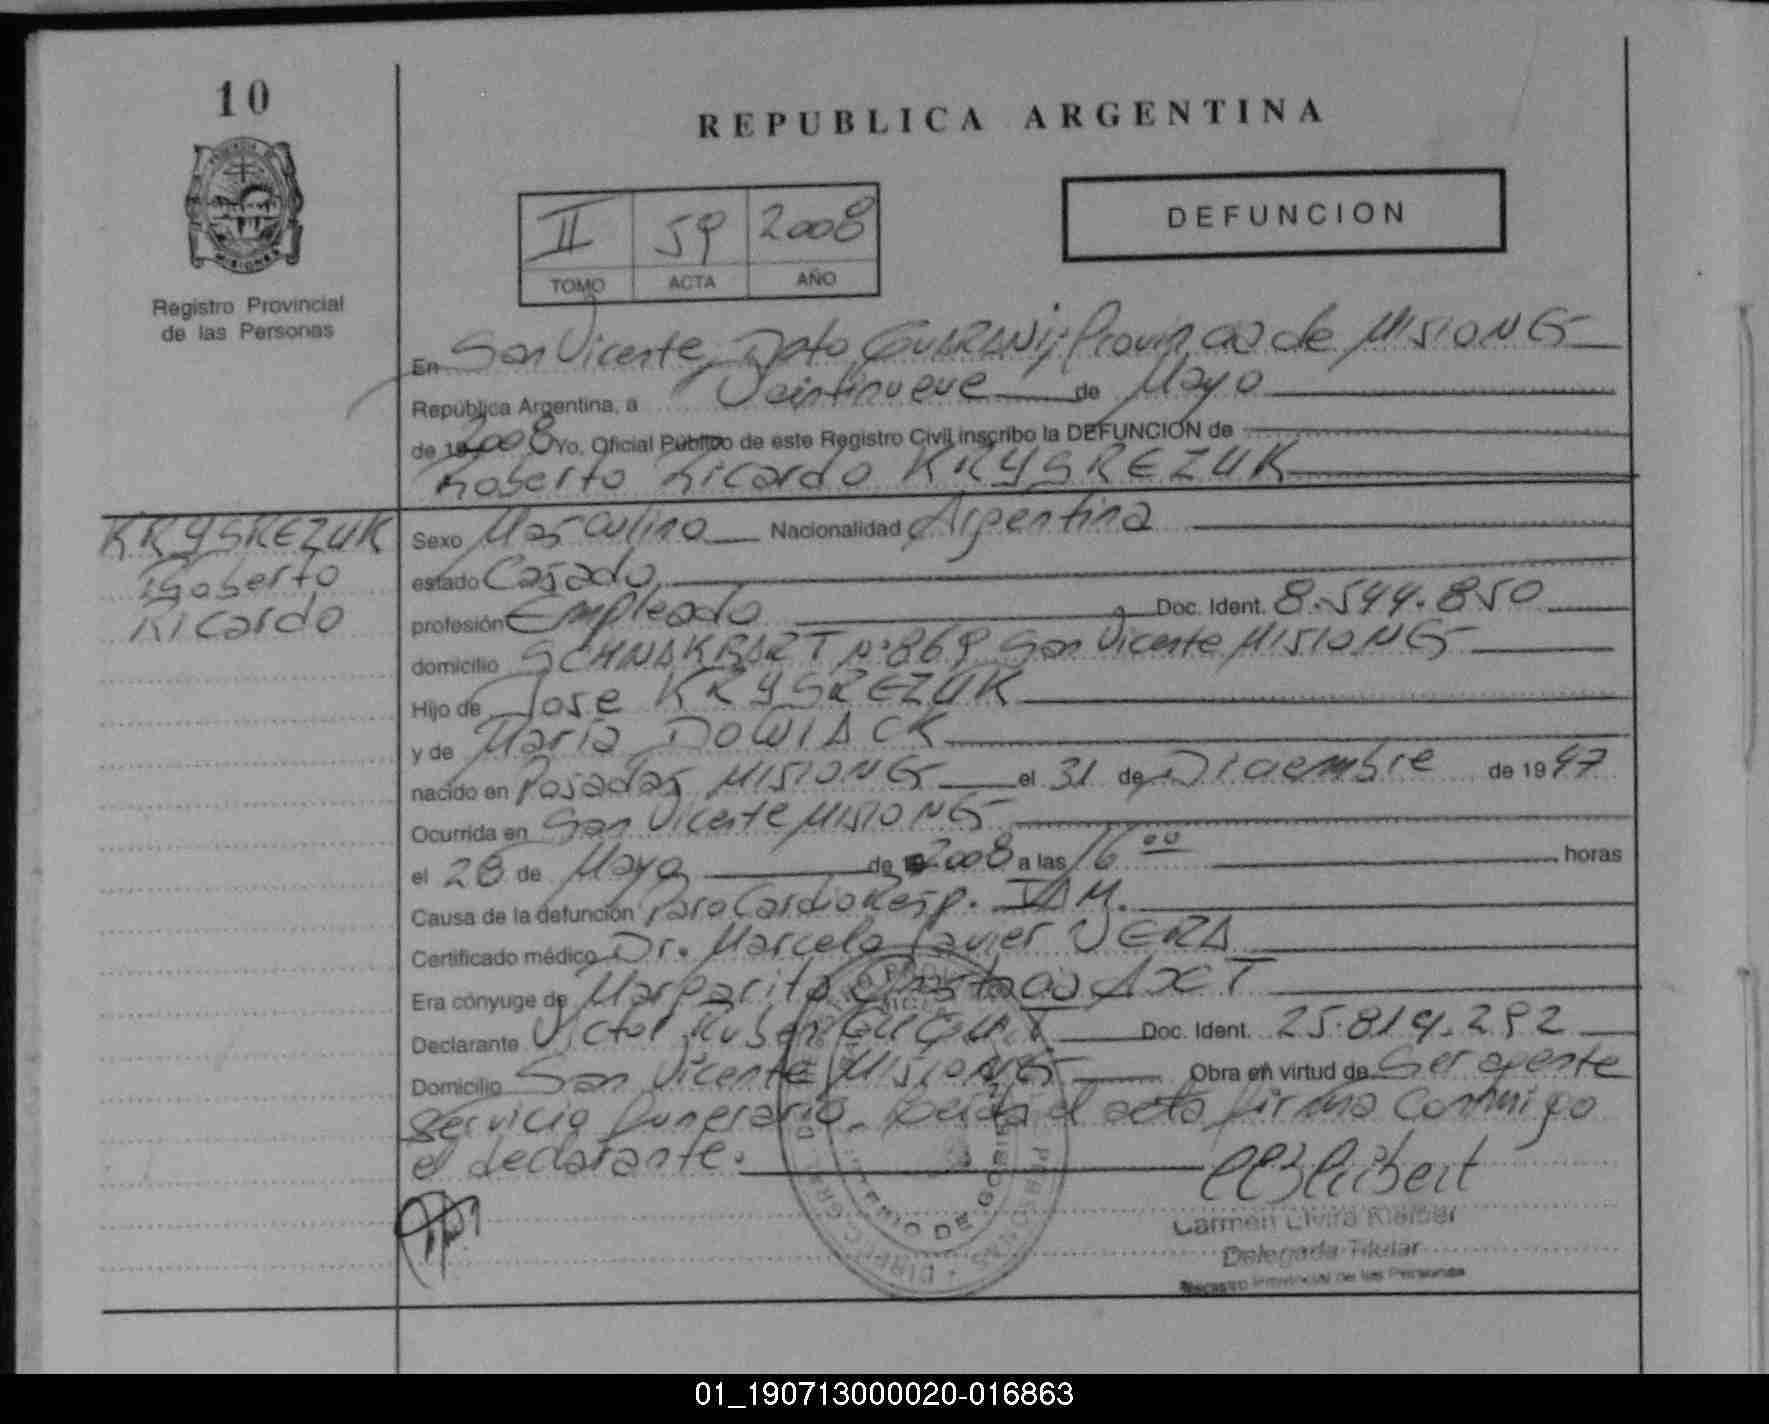 10
REPUBLICA ARGENTINA
II 59 2008
TOMO ACTA AÑO
DEFUNCION
Registro Provincial
de las Personas
En San Vicente, Dpto GUARANI; Provincia de MISIONES
República Argentina, a Veintinueve de Mayo
de 2008 Yo, Oficial Público de este Registro Civil inscribo la DEFUNCION de
Roberto Ricardo KRYSKEZUK
KRYSKEZUK
Roberto
Ricardo
Sexo Masculino Nacionalidad Argentina
estado Casado
profesión Empleado Doc. Ident. 8.544.850
domicilio N° 869 San Vicente MISIONES
Hijo de Jose KRYSKEZUK
y de Maria DOWIACK
nacido en Posadas MISIONES el 31 de Diciembre de 1947
Ocurrida en San Vicente MISIONES
el 28 de Mayo de 2008 a las 16 00 horas
Causa de la defunción Paro CardioResp. IAM.
Certificado médico Dr. Marcelo Javier VERA
Era cónyuge de Margarita AXT
Declarante Victor Ruben Doc. Ident. 25.819.292
Domicilio San Vicente MISIONES Obra en virtud de Ser agente
servicio funerario. Leida el acta firma conmigo
el declarante.
Carmen Elvira Kleiber
Delegada Titular
Registro Provincial de las Personas
01_190713000020-016863